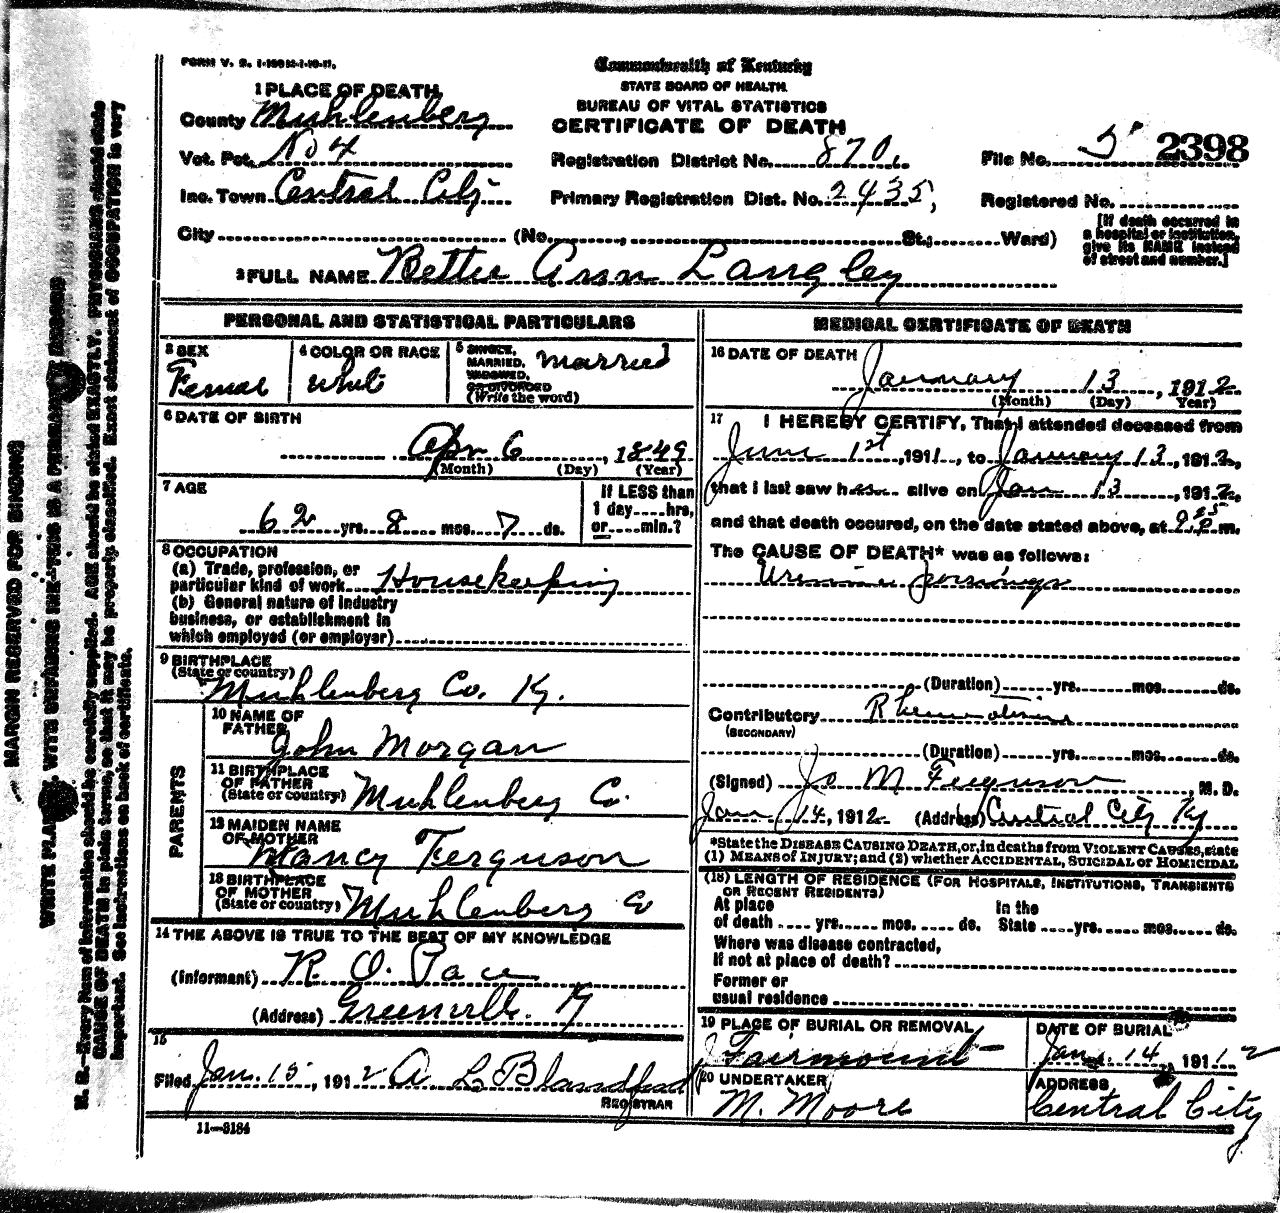 FORM V. S. 1-
Commonwealth of Kentucky
STATE BOARD OF HEALTH.
BUREAU OF VITAL STATISTICS
CERTIFICATE OF DEATH
1 PLACE OF DEATH
County Muhlenberg
Vot. Pct. No 4
Inc. Town Central City
Registration District No. 870
Primary Registration Dist. No. 2435
File No. 2398
Registered No.
City (No. , St.; Ward)
[If death occurred in
a hospital or institution,
give its NAME instead
of street and number.]
2 FULL NAME Bettie Ann Langley
PERSONAL AND STATISTICAL PARTICULARS
3 SEX
Female
4 COLOR OR RACE
white
5 SINGLE,
MARRIED,
WIDOWED,
OR DIVORCED
(Write the word)
Married
6 DATE OF BIRTH
Apr 6, 1849
(Month) (Day) (Year)
7 AGE
62 yrs. 8 mos. 7 ds.
If LESS than
1 day hrs.
or min.?
8 OCCUPATION
(a) Trade, profession, or
particular kind of work Housekeeping
(b) General nature of industry
business, or establishment in
which employed (or employer)
9 BIRTHPLACE
(State or country)
Muhlenberg Co. Ky.
PARENTS
10 NAME OF
FATHER
John Morgan
11 BIRTHPLACE
OF FATHER
(State or country) Muhlenberg Co.
12 MAIDEN NAME
OF MOTHER
Nancy Ferguson
13 BIRTHPLACE
OF MOTHER
(State or country) Muhlenberg Co
14 THE ABOVE IS TRUE TO THE BEST OF MY KNOWLEDGE
(Informant) R. O. Pace
(Address) Greenville. Ky
15
Filed Jan. 15, 1912 A L Blandford
REGISTRAR
11—3184
MEDICAL CERTIFICATE OF DEATH
16 DATE OF DEATH
January 13, 1912
(Month) (Day) (Year)
17 I HEREBY CERTIFY, That I attended deceased from
June 1st, 1911, to January 13, 1912,
that I last saw her alive on Jan 13, 1912,
and that death occured, on the date stated above, at m.
The CAUSE OF DEATH* was as follows:
(Duration) yrs. mos. ds.
Contributory Rheumatism
(SECONDARY)
(Duration) yrs. mos. ds.
(Signed) Jo M Ferguson, M. D.
Jan 14, 1912 (Address) Central City Ky
*State the DISEASE CAUSING DEATH, or, in deaths from VIOLENT CAUSES, state
(1) MEANS OF INJURY; and (2) whether ACCIDENTAL, SUICIDAL or HOMICIDAL
(18) LENGTH OF RESIDENCE (FOR HOSPITALS, INSTITUTIONS, TRANSIENTS
OR RECENT RESIDENTS)
At place
of death yrs. mos. ds.
In the
State yrs. mos. ds.
Where was disease contracted,
If not at place of death?
Former or
usual residence
19 PLACE OF BURIAL OR REMOVAL
Fairmount
DATE OF BURIAL
Jan. 14, 1912
20 UNDERTAKER
M. Moore
ADDRESS
Central City
MARGIN RESERVED FOR BINDING
WRITE PLAINLY, WITH UNFADING INK—THIS IS A PERMANENT RECORD
N. B.—Every item of information should be carefully supplied. AGE should be stated EXACTLY. PHYSICIANS should state
CAUSE OF DEATH in plain terms, so that it may be properly classified. Exact statement of OCCUPATION is very
important. See instructions on back of certificate.